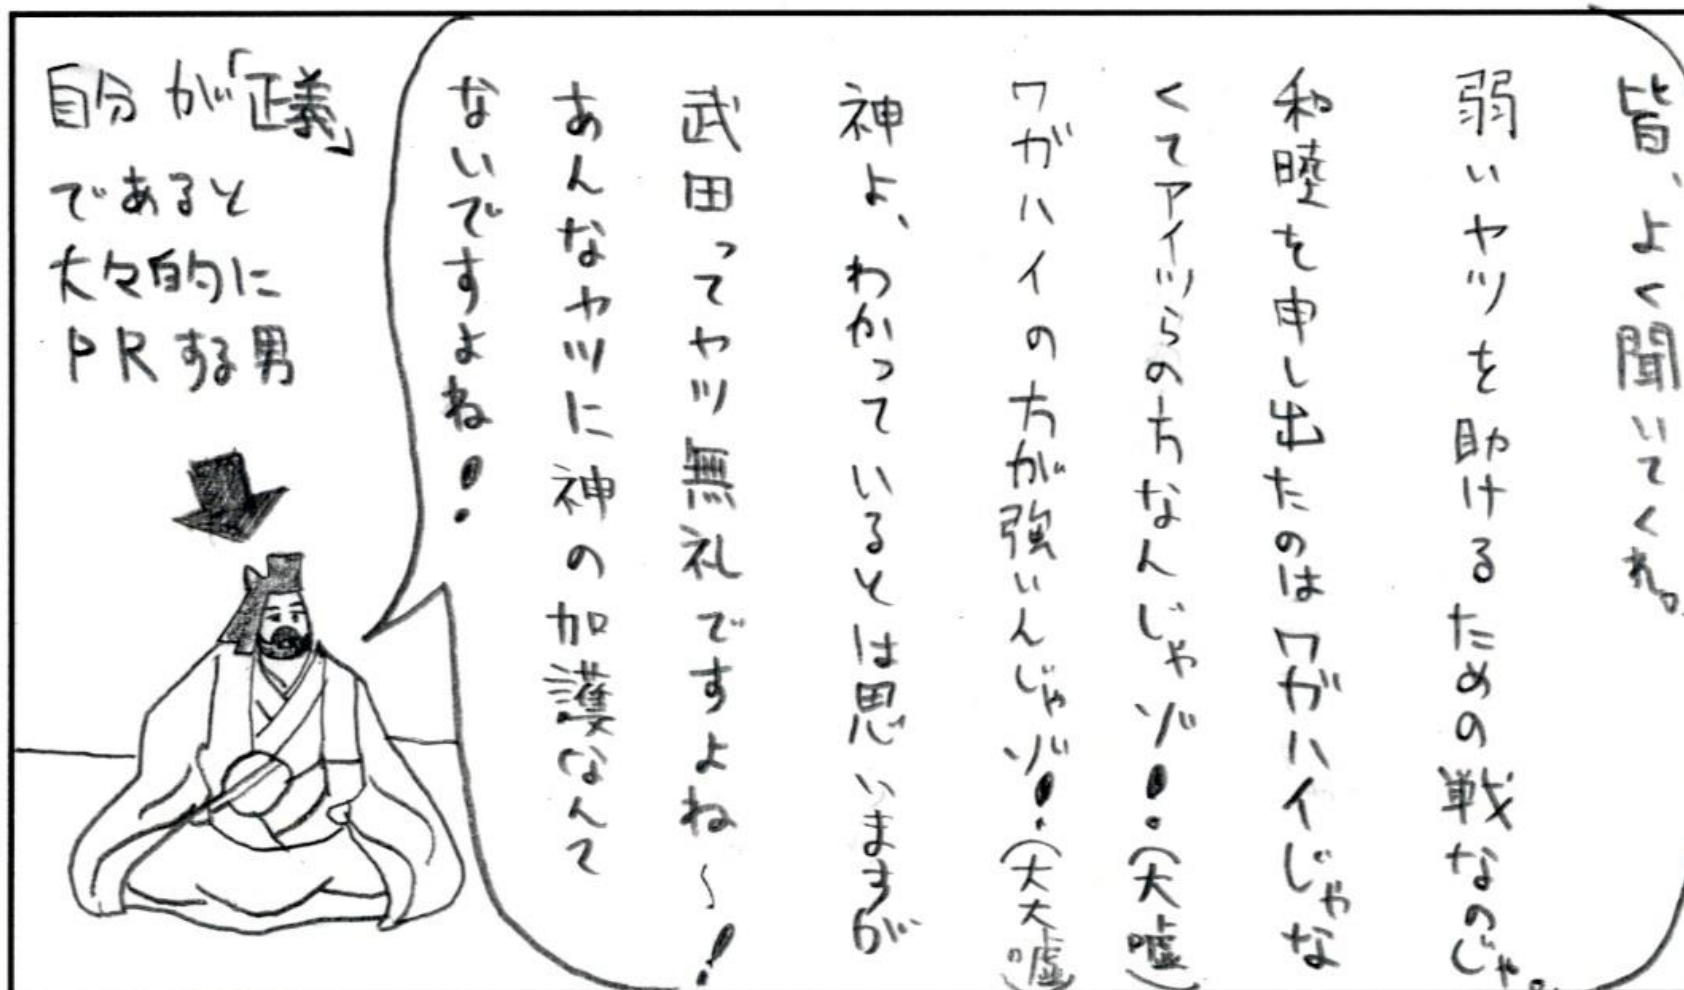 皆、よく聞いてくれ。
弱いヤツを助けるための戦なのじゃ。
和睦を申し出たのはワガハイじゃな
くてアイツらの方なんじゃゾ!(大嘘)
ワガハイの方が強いんじゃゾ!(大大嘘)
神よ、わかっているとは思いますが
武田ってヤツ無礼ですよね〜!
あんなヤツに神の加護なんて
ないですよね!
自分が「正義」
であると
大々的に
PRする男